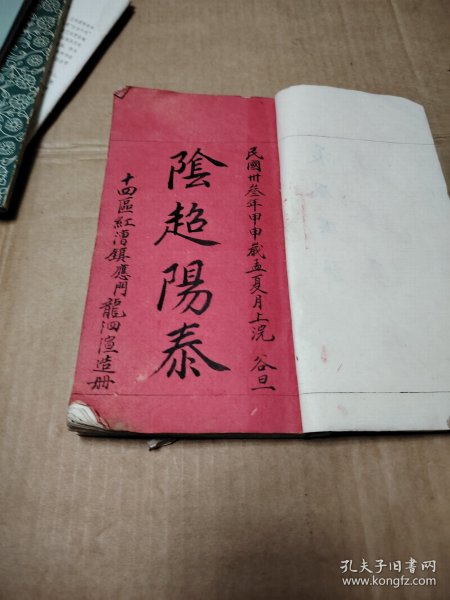 民國卅叄年甲申歲孟夏月上浣 谷旦
陰超陽泰
十四區紅漕鎮應門龍泗渲造册
孔夫子旧书网
www.kongfz.com